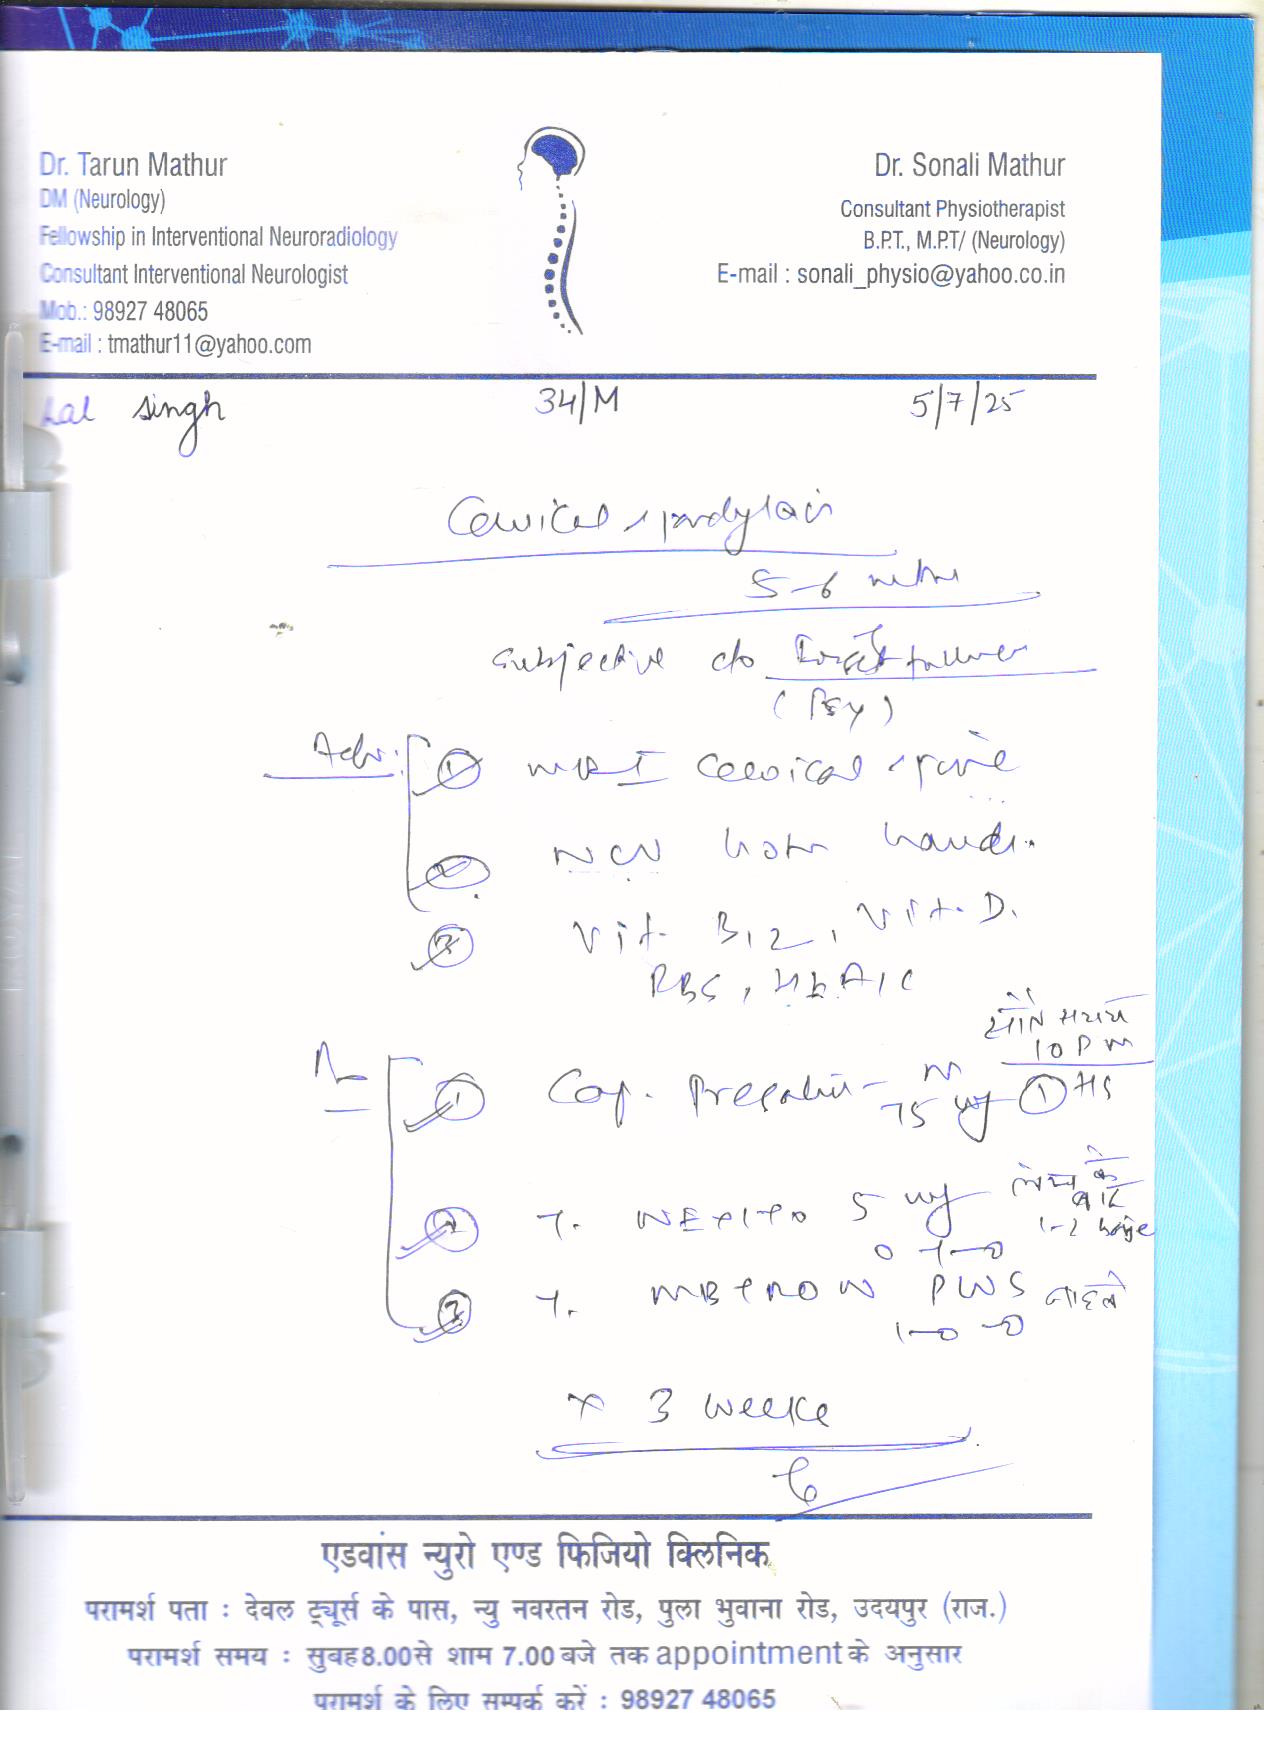 Dr. Tarun Mathur
DM (Neurology)
Fellowship in Interventional Neuroradiology
Consultant Interventional Neurologist
Mob.: 98927 48065
E-mail : tmathur11@yahoo.com
Dr. Sonali Mathur
Consultant Physiotherapist
B.P.T., M.P.T/ (Neurology)
E-mail : sonali_physio@yahoo.co.in
Lal singh 34/M 5/7/25
Cervical spondylosis
5-6
subjective c/o
(Psy)
Adv:
① MRI Cervical spine
② NCV both hands.
③ Vit. B12, Vit. D.
RBS, HbA1C
सोते समय
10 PM
① Cap. Pregabalin-M 75 mg ① HS
② T. NEXITO 5 mg लंच के बाद
0-1-0 1-2 बजे
③ T. PLUS
1-0-0
x 3 weeks
एडवांस न्युरो एण्ड फिजियो क्लिनिक
परामर्श पता : देवल ट्यूर्स के पास, न्यु नवरतन रोड, पुला भुवाना रोड, उदयपुर (राज.)
परामर्श समय : सुबह 8.00 से शाम 7.00 बजे तक appointment के अनुसार
परामर्श के लिए सम्पर्क करें : 98927 48065